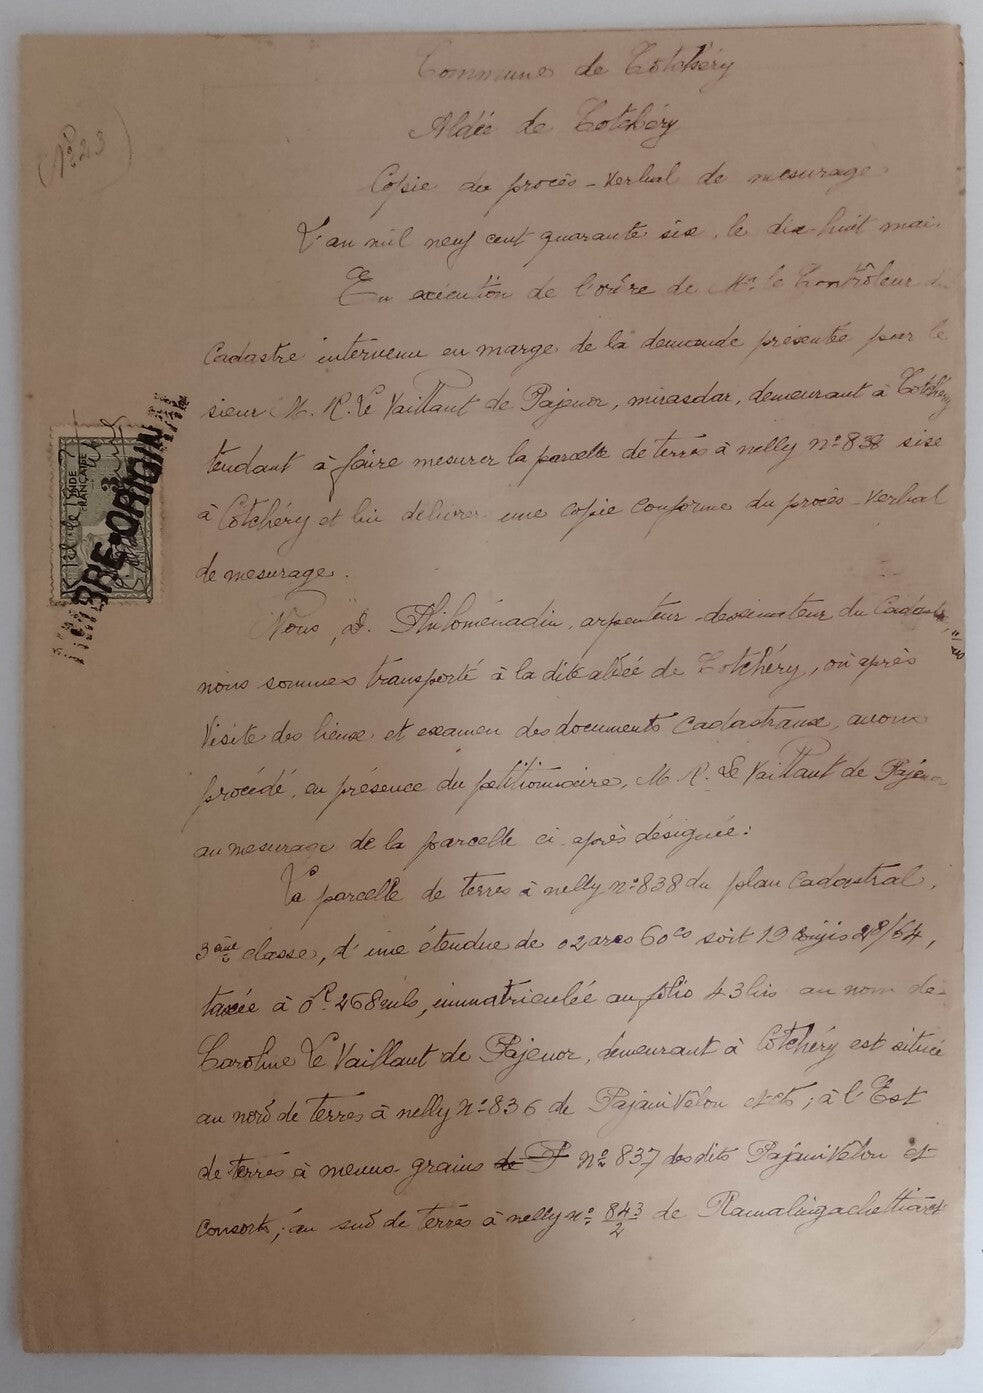 Commune de Cotchéry
Aldée de Cotchéry
(N° 23)
Copie du procès-verbal de mesurage
L'an mil neuf cent quarante six, le dix-huit mai.
En exécution de l'ordre de Mr. le Contrôleur du
Cadastre intervenu en marge de la demande présentée par le
sieur M. R. Le Vaillant de Pajenor, mirasdar, demeurant à Cotchéry
tendant à faire mesurer la parcelle de terres à nelly n° 838 sise
à Cotchéry et lui délivrer une copie conforme du procès-verbal
de mesurage.
INDE
FRANÇAISE
TIMBRE-ORIGIN
Nous, D. Philoménadin, arpenteur-dessinateur du Cadastre,
nous sommes transporté à la dite aldée de Cotchéry, où après
visite des lieux et examen des documents cadastraux, avons
procédé, en présence du pétitionnaire, M. R. Le Vaillant de Pajenor
au mesurage de la parcelle ci-après désignée:
La parcelle de terres à nelly n° 838 du plan cadastral,
3ème classe, d'une étendue de 02 ares 60 cs soit 19 coujis 28/64,
taxée à 0R. 268 mls, immatriculée au folio 43 bis au nom de
Caroline Le Vaillant de Pajenor, demeurant à Cotchéry est située
au nord de terres à nelly n° 836 de Pajanivélou et cts; à l'Est
de terres à menus grains de P n° 837 des dits Pajanivélou et
consorts; au sud de terres à nelly n° 843/2 de Ramalingachettiar et